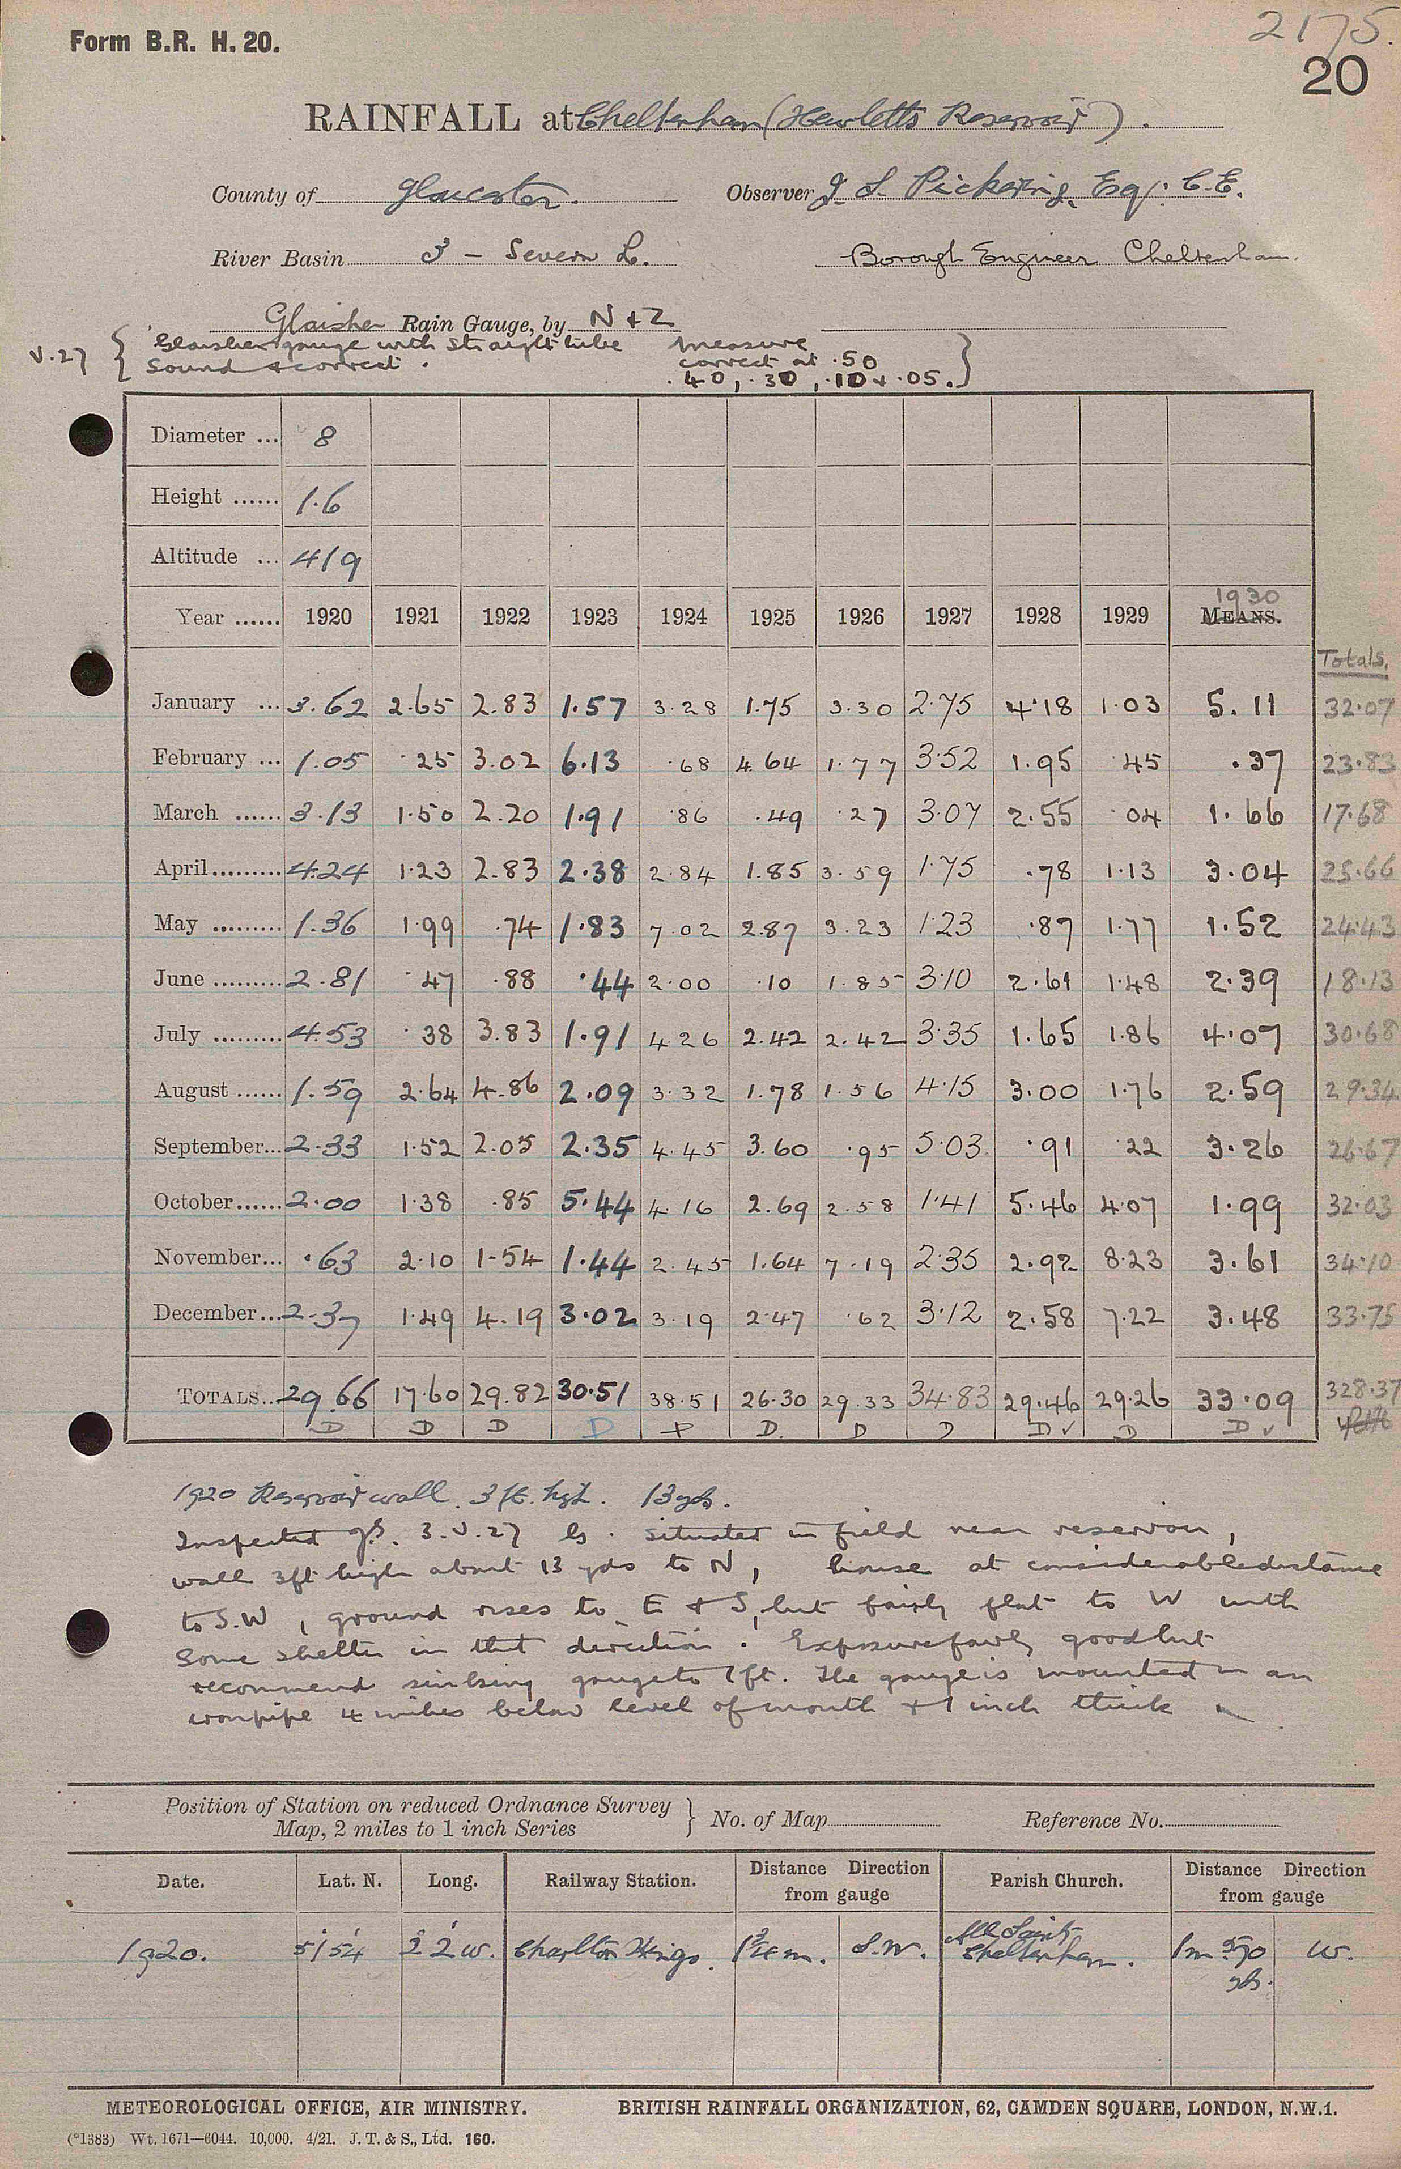 2175.
Form B.R. H. 20.
20
RAINFALL at Cheltenham (Hewletts Reservoir).
County of Gloucester. Observer J. S. Pickering, Esq. C.E.
River Basin 3 - Severn L. Borough Engineer Cheltenham.
Glaisher Rain Gauge, by N + Z
V.27 { Glaisher gauge with straight tube measure }
sound & correct. correct at .50
.40, .30, .10 & .05.
Diameter ... 8
Height ...... 1.6
Altitude ... 419
1930
Year ...... 1920 1921 1922 1923 1924 1925 1926 1927 1928 1929 MEANS.
Totals.
January ... 3.62 2.65 2.83 1.57 3.28 1.75 3.30 2.75 4.18 1.03 5.11 32.07
February ... 1.05 .25 3.02 6.13 .68 4.64 1.77 3.52 1.95 .45 .37 23.83
March ...... 3.13 1.50 2.20 1.91 .86 .49 .27 3.07 2.55 .04 1.66 17.68
April ......... 4.24 1.23 2.83 2.38 2.84 1.85 3.59 1.75 .78 1.13 3.04 25.66
May ......... 1.36 1.99 .74 1.83 7.02 2.87 3.23 1.23 .87 1.77 1.52 24.43
June ......... 2.81 .47 .88 .44 2.00 .10 1.85 3.10 2.61 1.48 2.39 18.13
July ......... 4.53 .38 3.83 1.91 4.26 2.42 2.42 3.35 1.65 1.86 4.07 30.68
August ...... 1.59 2.64 4.86 2.09 3.32 1.78 1.56 4.15 3.00 1.76 2.59 29.34
September... 2.33 1.52 2.05 2.35 4.45 3.60 .95 5.03 .91 .22 3.26 26.67
October...... 2.00 1.38 .85 5.44 4.16 2.69 2.58 1.41 5.46 4.07 1.99 32.03
November... .63 2.10 1.54 1.44 2.45 1.64 7.19 2.35 2.92 8.23 3.61 34.10
December... 2.37 1.49 4.19 3.02 3.19 2.47 .62 3.12 2.58 7.22 3.48 33.75
TOTALS... 29.66 17.60 29.82 30.51 38.51 26.30 29.33 34.83 29.46 29.26 33.09 328.37
D D D D D D. D D D ✓ D D ✓
1920 Reservoir wall 3 ft. hgh. 13 yds.
Inspected 3.V.27 situated in field near reservoir,
wall 3ft high about 13 yds to N, house at considerable distance
to S.W, ground rises to E & S, but fairly flat to W with
some shelter in that direction. Exposure fairly good but
recommend sinking gauge to 1 ft. The gauge is mounted in an
iron pipe 4 inches below level of mouth & 1 inch thick
Position of Station on reduced Ordnance Survey
Map, 2 miles to 1 inch Series } No. of Map Reference No.
Date. Lat. N. Long. Railway Station. Distance Direction from gauge Parish Church. Distance Direction from gauge
1920. 51 54 2 2 W. Charlton Kings. 1¾ m. S.W. All Saints Cheltenham. 1m 570 yds. W.
METEOROLOGICAL OFFICE, AIR MINISTRY. BRITISH RAINFALL ORGANIZATION, 62, CAMDEN SQUARE, LONDON, N.W.1.
(*1383) Wt. 1671—6044. 10,000. 4/21. J. T. & S., Ltd. 160.